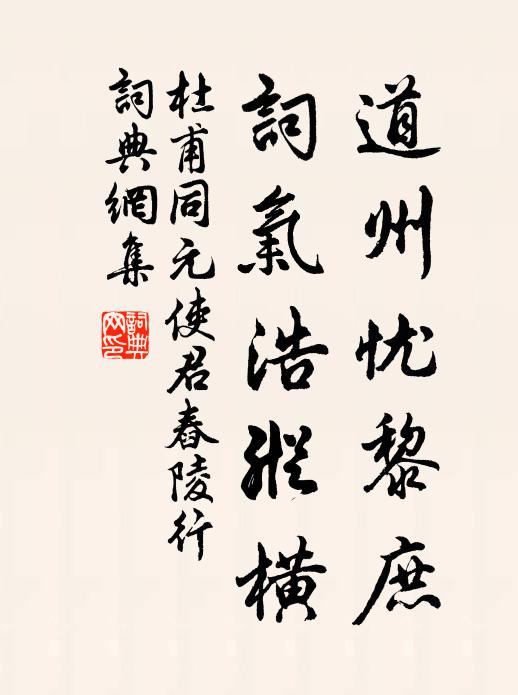 道州忧黎庶
詞氣浩縱橫
杜甫同元使君舂陵行
詞典網集
詞典網印